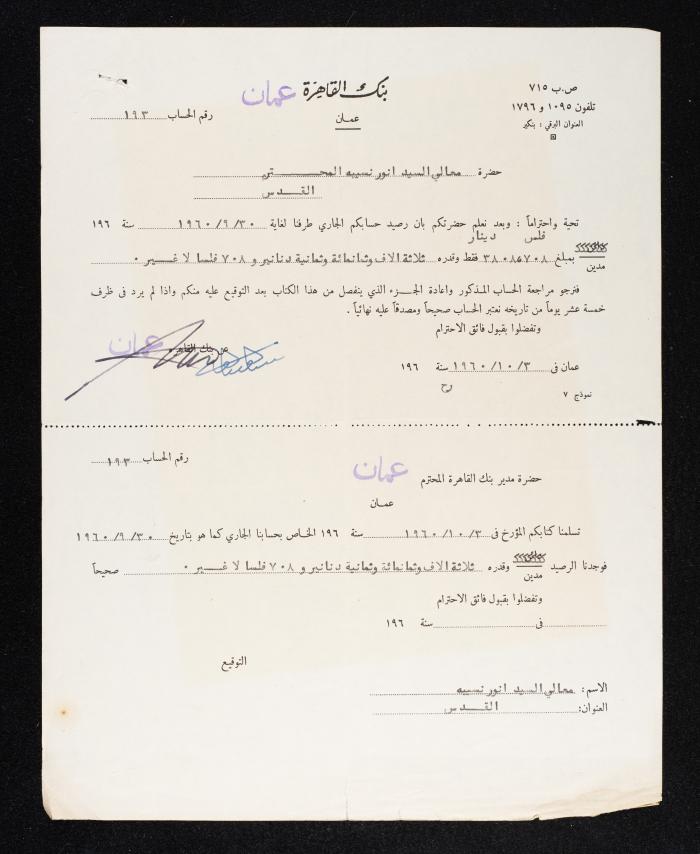 ص.ب ٧١٥
تلفون ١٠٩٥ و ١٧٩٦
العنوان البرقي : بنكير
بنك القاهرة عمان
عمان
رقم الحساب ١٩٣
حضرة معالي السيد انور نسيبه المحـــترم
القدس
تحية واحتراماً : وبعد نعلم حضرتكم بان رصيد حسابكم الجاري طرفنا لغاية ١٩٦٠/٩/٣٠ سنة ١٩٦
فلس دينار
بمبلغ ٧٠٨ فقط وقدره ثلاثة الاف وثمانمائة وثمانية دنانير و ٧٠٨ فلسا لا غــير ٠
مدين
فنرجو مراجعة الحساب المذكور واعادة الجزء الذي ينفصل من هذا الكتاب بعد التوقيع عليه منكم واذا لم يرد في ظرف
خمسة عشر يوماً من تاريخه نعتبر الحساب صحيحاً ومصدقاً عليه نهائياً .
وتفضلوا بقبول فائق الاحترام
عن بنك القاهرة عمان
عمان في ١٩٦٠/١٠/٣ سنة ١٩٦
نموذج ٧
رقم الحساب ١٩٣
حضرة مدير بنك القاهرة المحترم عمان
عمان
تسلمنا كتابكم المؤرخ في ١٩٦٠/١٠/٣ سنة ١٩٦ الخاص بحسابنا الجاري كما هو بتاريخ ١٩٦٠/٩/٣٠
فوجدنا الرصيد وقدره ثلاثة الاف وثمانمائة وثمانية دنانير و ٧٠٨ فلسا لا غــير ٠ صحيحاً
مدين
وتفضلوا بقبول فائق الاحترام
في سنة ١٩٦
التوقيع
الاسم : معالي السيد انور نسيبه
العنوان: القدس